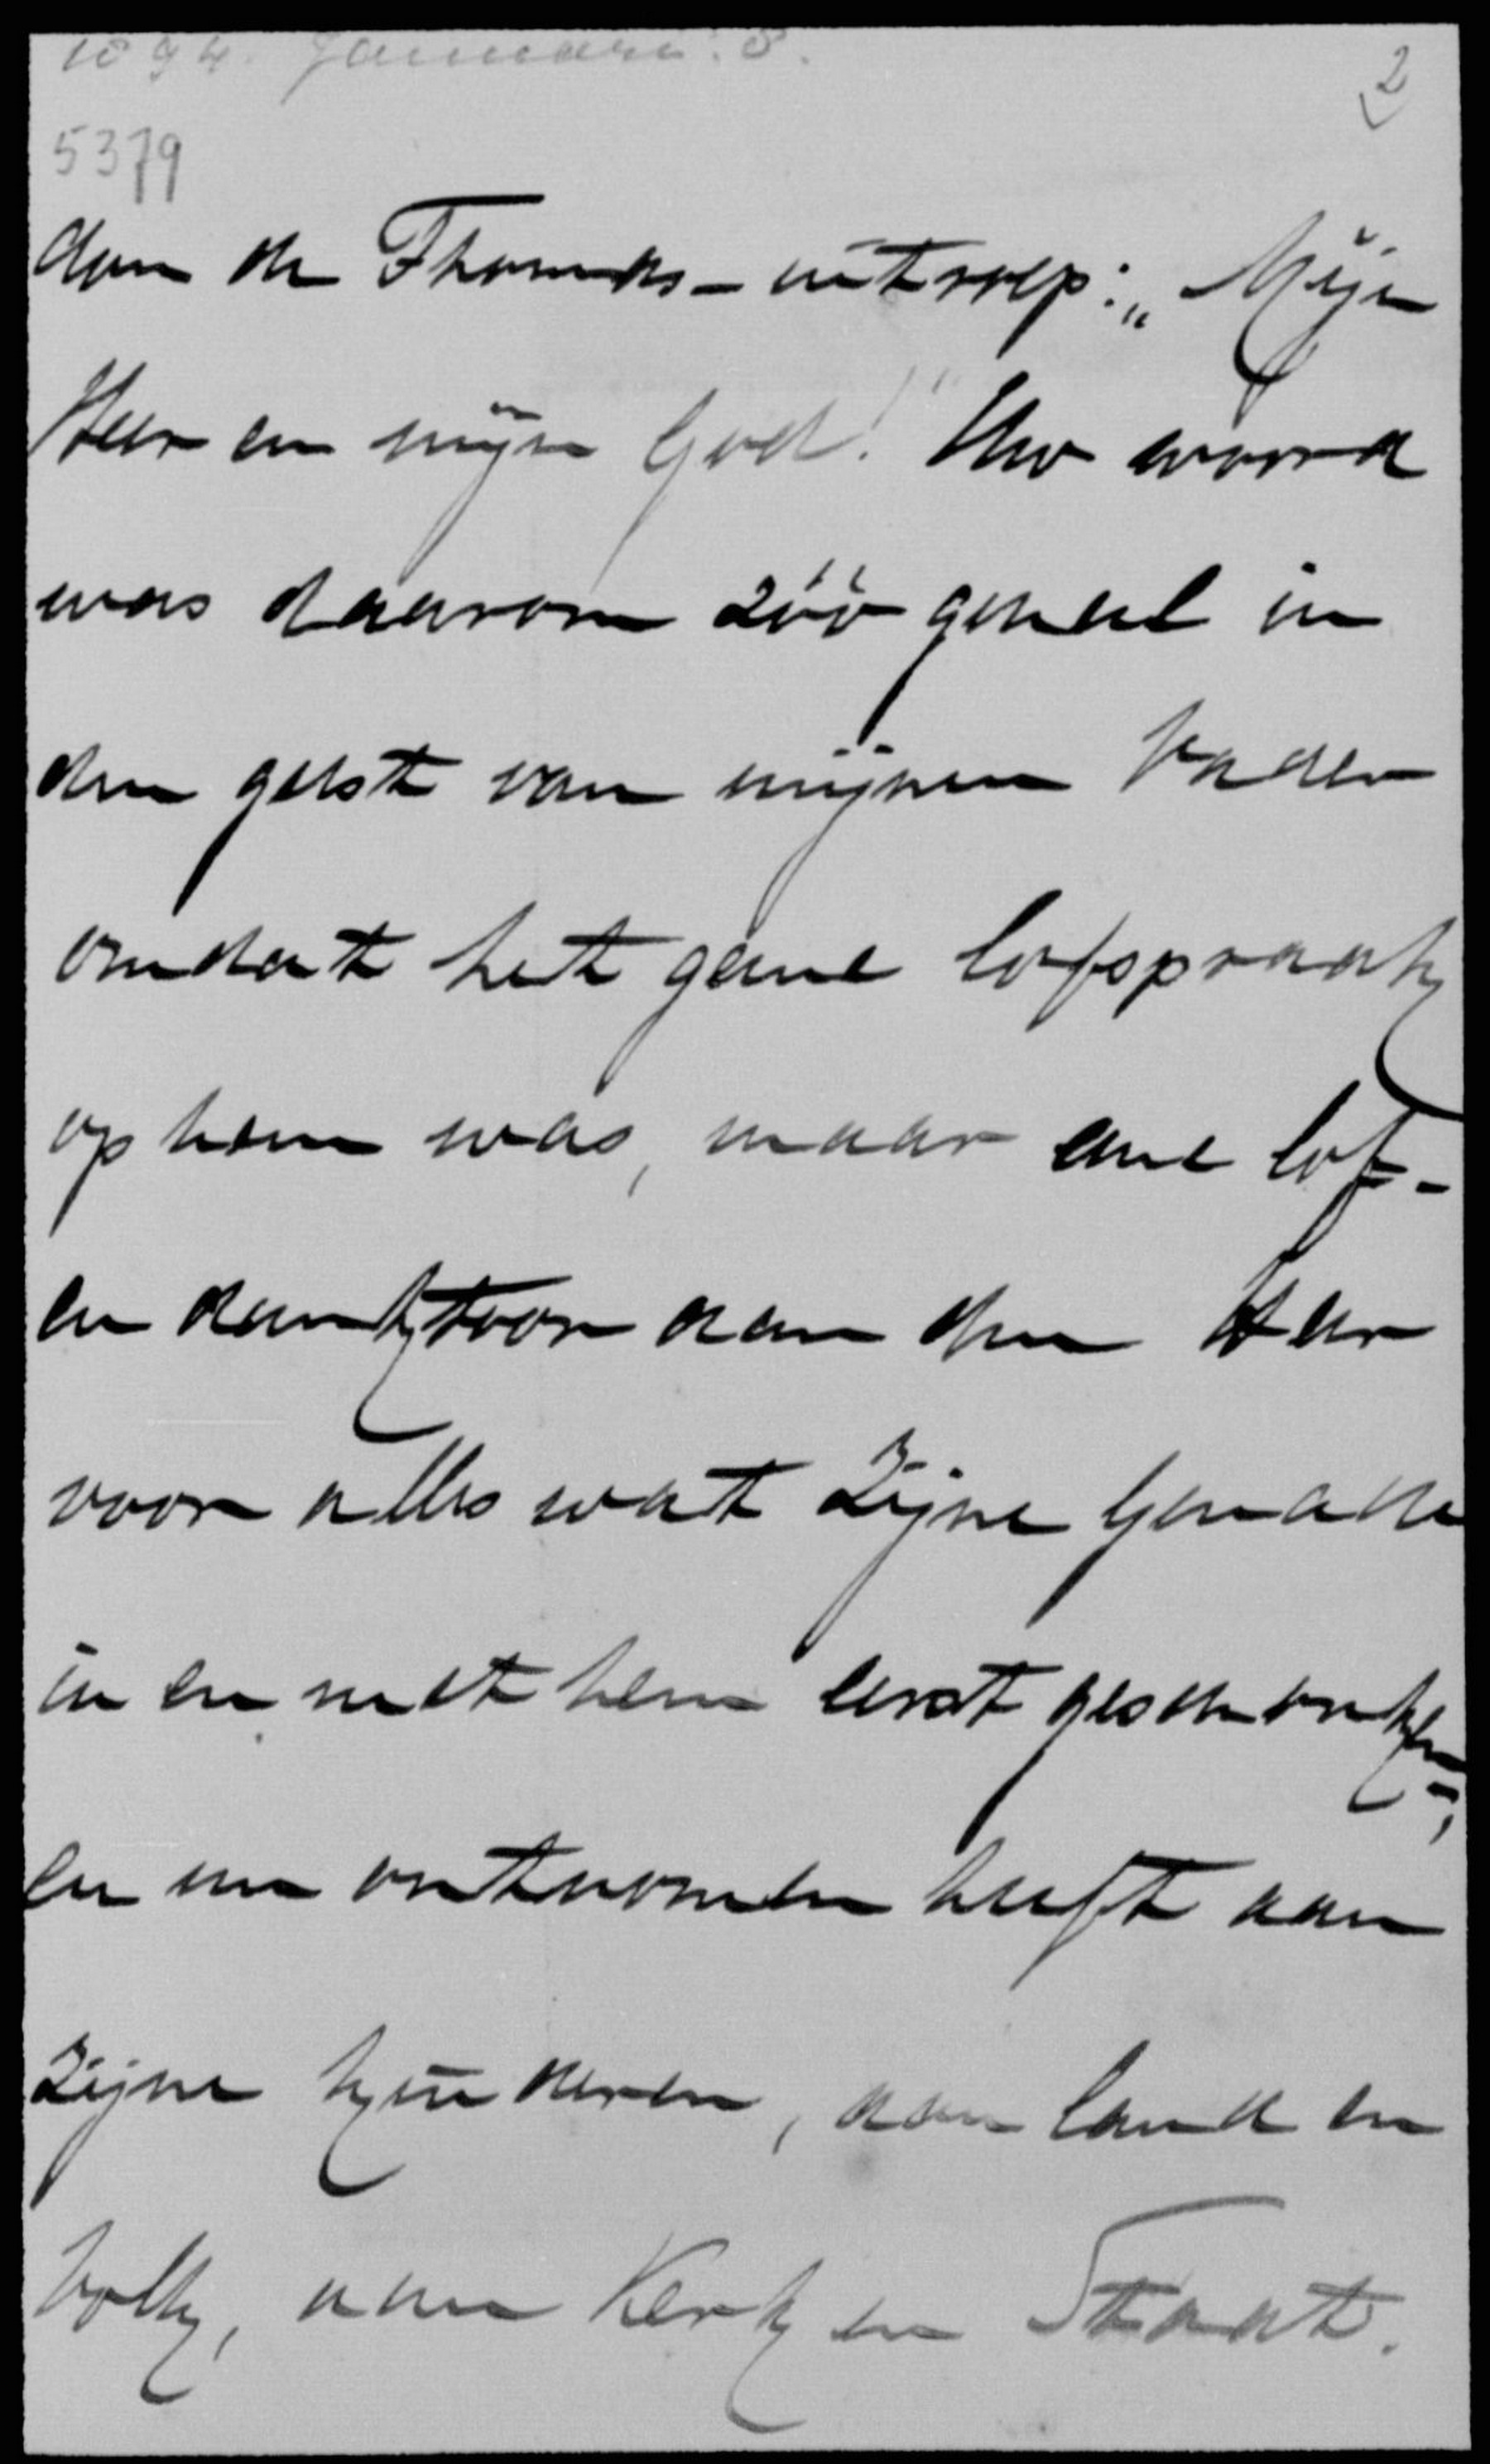 1894. Januari. 8.
2
5379
dan de Thomas-uitroep: „Mijn
Heer en mijn God!" Uw woord
was daarom zóó geheel in
den geest van mijnen Vader
omdat het geene lofspraak
op hem was, maar eene lof-
en danktoon aan den Heer
voor alles wat Zijne Genade
in en met hem eerst geschonken,
en nu ontnomen heeft aan
zijne kinderen, aan land en
Volk, aan Kerk en Staat.